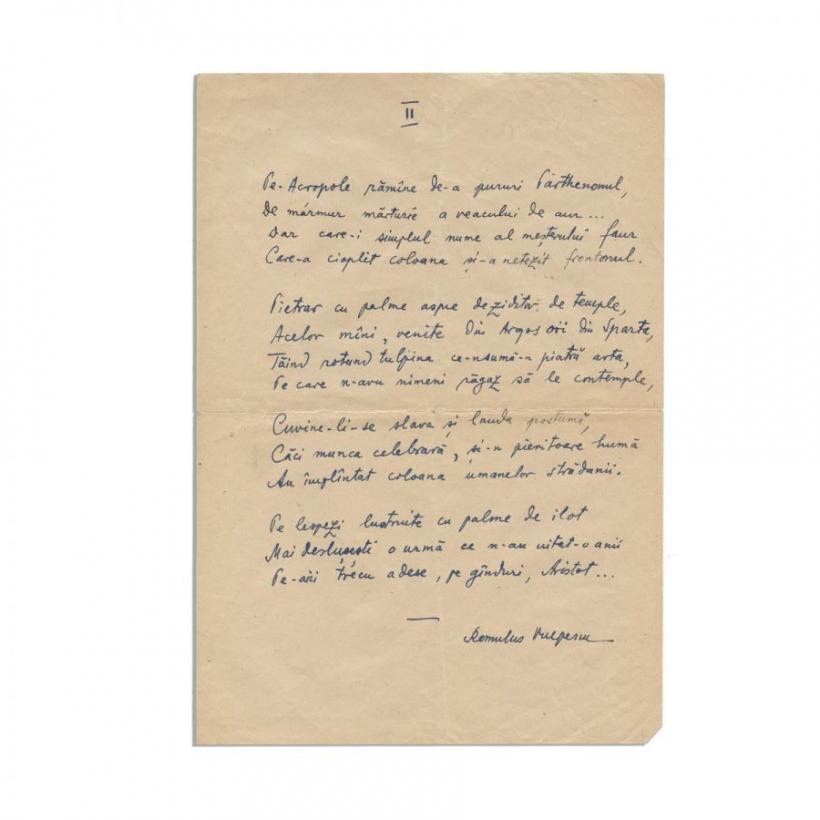 II
Pe-Acropole rămîne de-a pururi Parthenonul,
De mármur mărturie a veacului de aur...
Dar care-i simplul nume al meșterului faur
Care-a cioplit coloana și-a netezit frontonul.
Pietrar cu palme aspre de ziditor de temple,
Acelor mîni, venite din Argos ori din Sparta,
Tăind rotund tulpina ce-nsumă-n piatră arta,
Pe care n-avu nimeni răgaz să le contemple,
Cuvine-li-se slava și lauda postumă,
Căci munca celebrară, și-n pieritoare humă
Au împlîntat coloana umanelor strădanii.
Pe lespezi lustruite cu palme de ilot
Mai deslușești o urmă ce n-au uitat-o anii
Pe-aici trecu adese, pe gînduri, Aristot...
Romulus Vulpescu